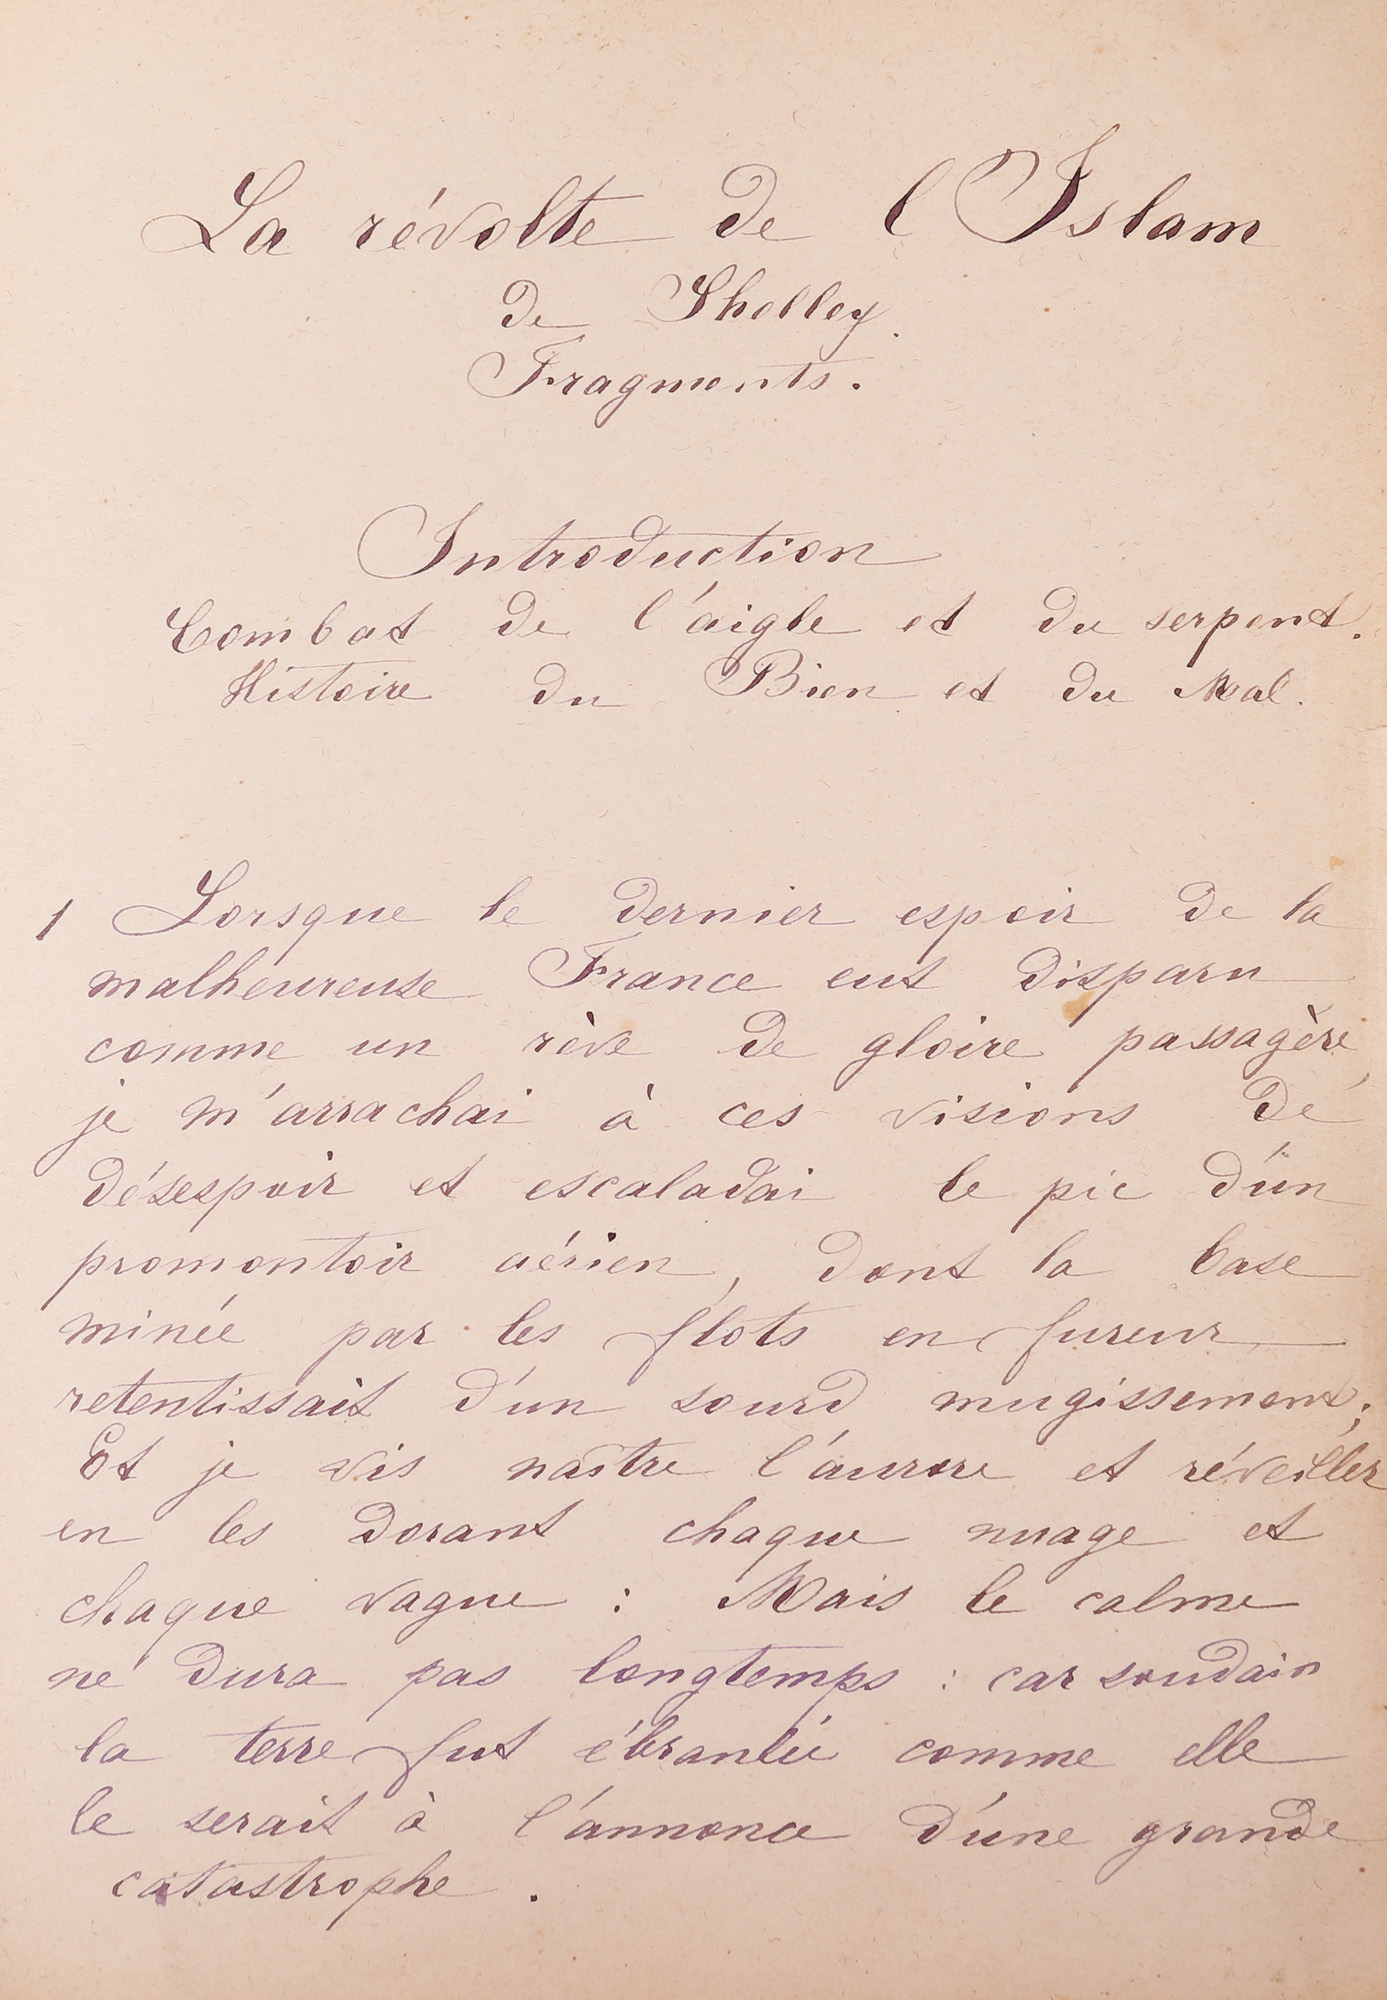 La révolte de l'Islam
de Shelley.
Fragments.
Introduction
Combat de l'aigle et du serpent.
Histoire du Bien et du Mal.
1 Lorsque le dernier espoir de la
malheureuse France eut disparu
comme un rêve de gloire passagère,
je m'arrachai à ces visions de
désespoir et escaladai le pic d'un
promontoir aérien, dont la base
minée par les flots en fureur
retentissait d'un sourd mugissement;
Et je vis naître l'aurore et réveiller
en les dorant chaque nuage et
chaque vague : Mais le calme
ne dura pas longtemps : car soudain
la terre fut ébranlée comme elle
le serait à l'annonce d'une grande
catastrophe.